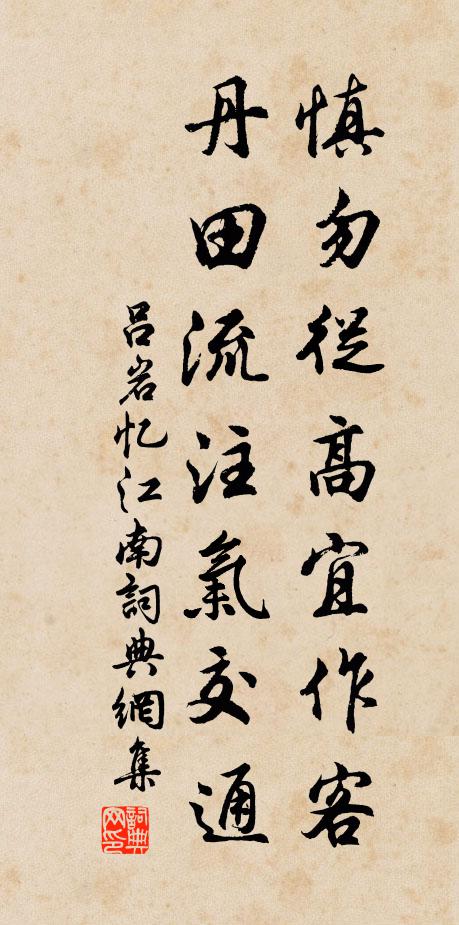 慎勿從高宜作客
丹田流注氣交通
吕岩忆江南詞典網集
詞典
网印